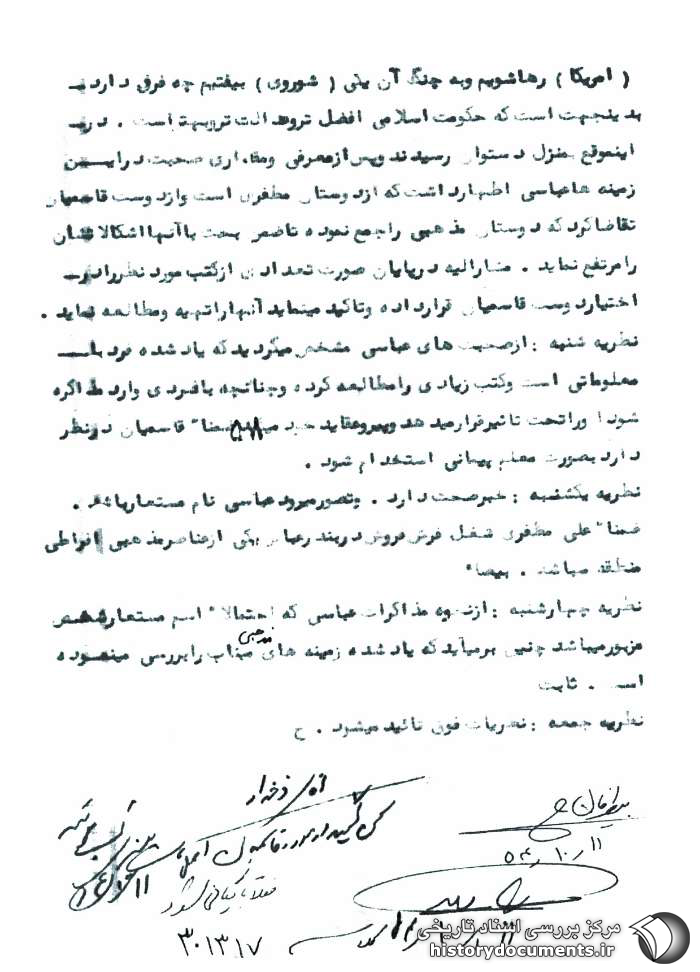 ( امریکا ) رها شویم و به چنگ آن یکی ( شوروی ) بیفتیم چه فرق دارد
بدینجهت است که حکومت اسلامی افضل تر و عدالت تر و بهتر است . در
اینموقع بمنزل دستوار رسیدند و پس از معرفی و مقداری صحبت در این
زمینه ها عباسی اظهار داشت که از دوستان مظفری است و از دوست قاسمیان
تقاضا کرد که دوستان مذهبی را جمع نموده تا ضمن بحث با آنها اشکالاتشان
را مرتفع نماید . مشارالیه در پایان صورت تعدادی از کتب مورد نظر را در
اختیار دوست قاسمیان قرار داده و تاکید مینماید آنها را تهیه و مطالعه نماید .
نظریه شنبه : از صحبت های عباسی مشخص میگردید که یاد شده فرد با
معلوماتی است و کتب زیادی را مطالعه کرده و چنانچه با فردی وارد مذاکره
شود او را تحت تاثیر قرار میدهد و پیرو عقاید خود میکند ضمنا" قاسمیان در نظر
دارد بصورت معلم پیمانی استخدام شود .
نظریه یکشنبه : خبر صحت دارد . و تصور میرود عباسی نام مستعار باشد .
ضمنا" علی مظفری شغل فرش فروش در بندرعباس یکی از عناصر مذهبی افراطی
منطقه میباشد . بیضاء
نظریه چهارشنبه : از نحوه مذاکرات عباسی که احتمالا" اسم مستعار شخص
مزبور میباشد چنین برمیآید که یاد شده زمینه های مذهبی را بررسی مینموده
است . ثابت
نظریه جمعه : نظریات فوق تائید میشود . ح
۵۴٫۱۰٫۱۱
فعلا بایگانی شود
۳۰۱۳۱۷
مرکز بررسی اسناد تاریخی
historydocuments.ir